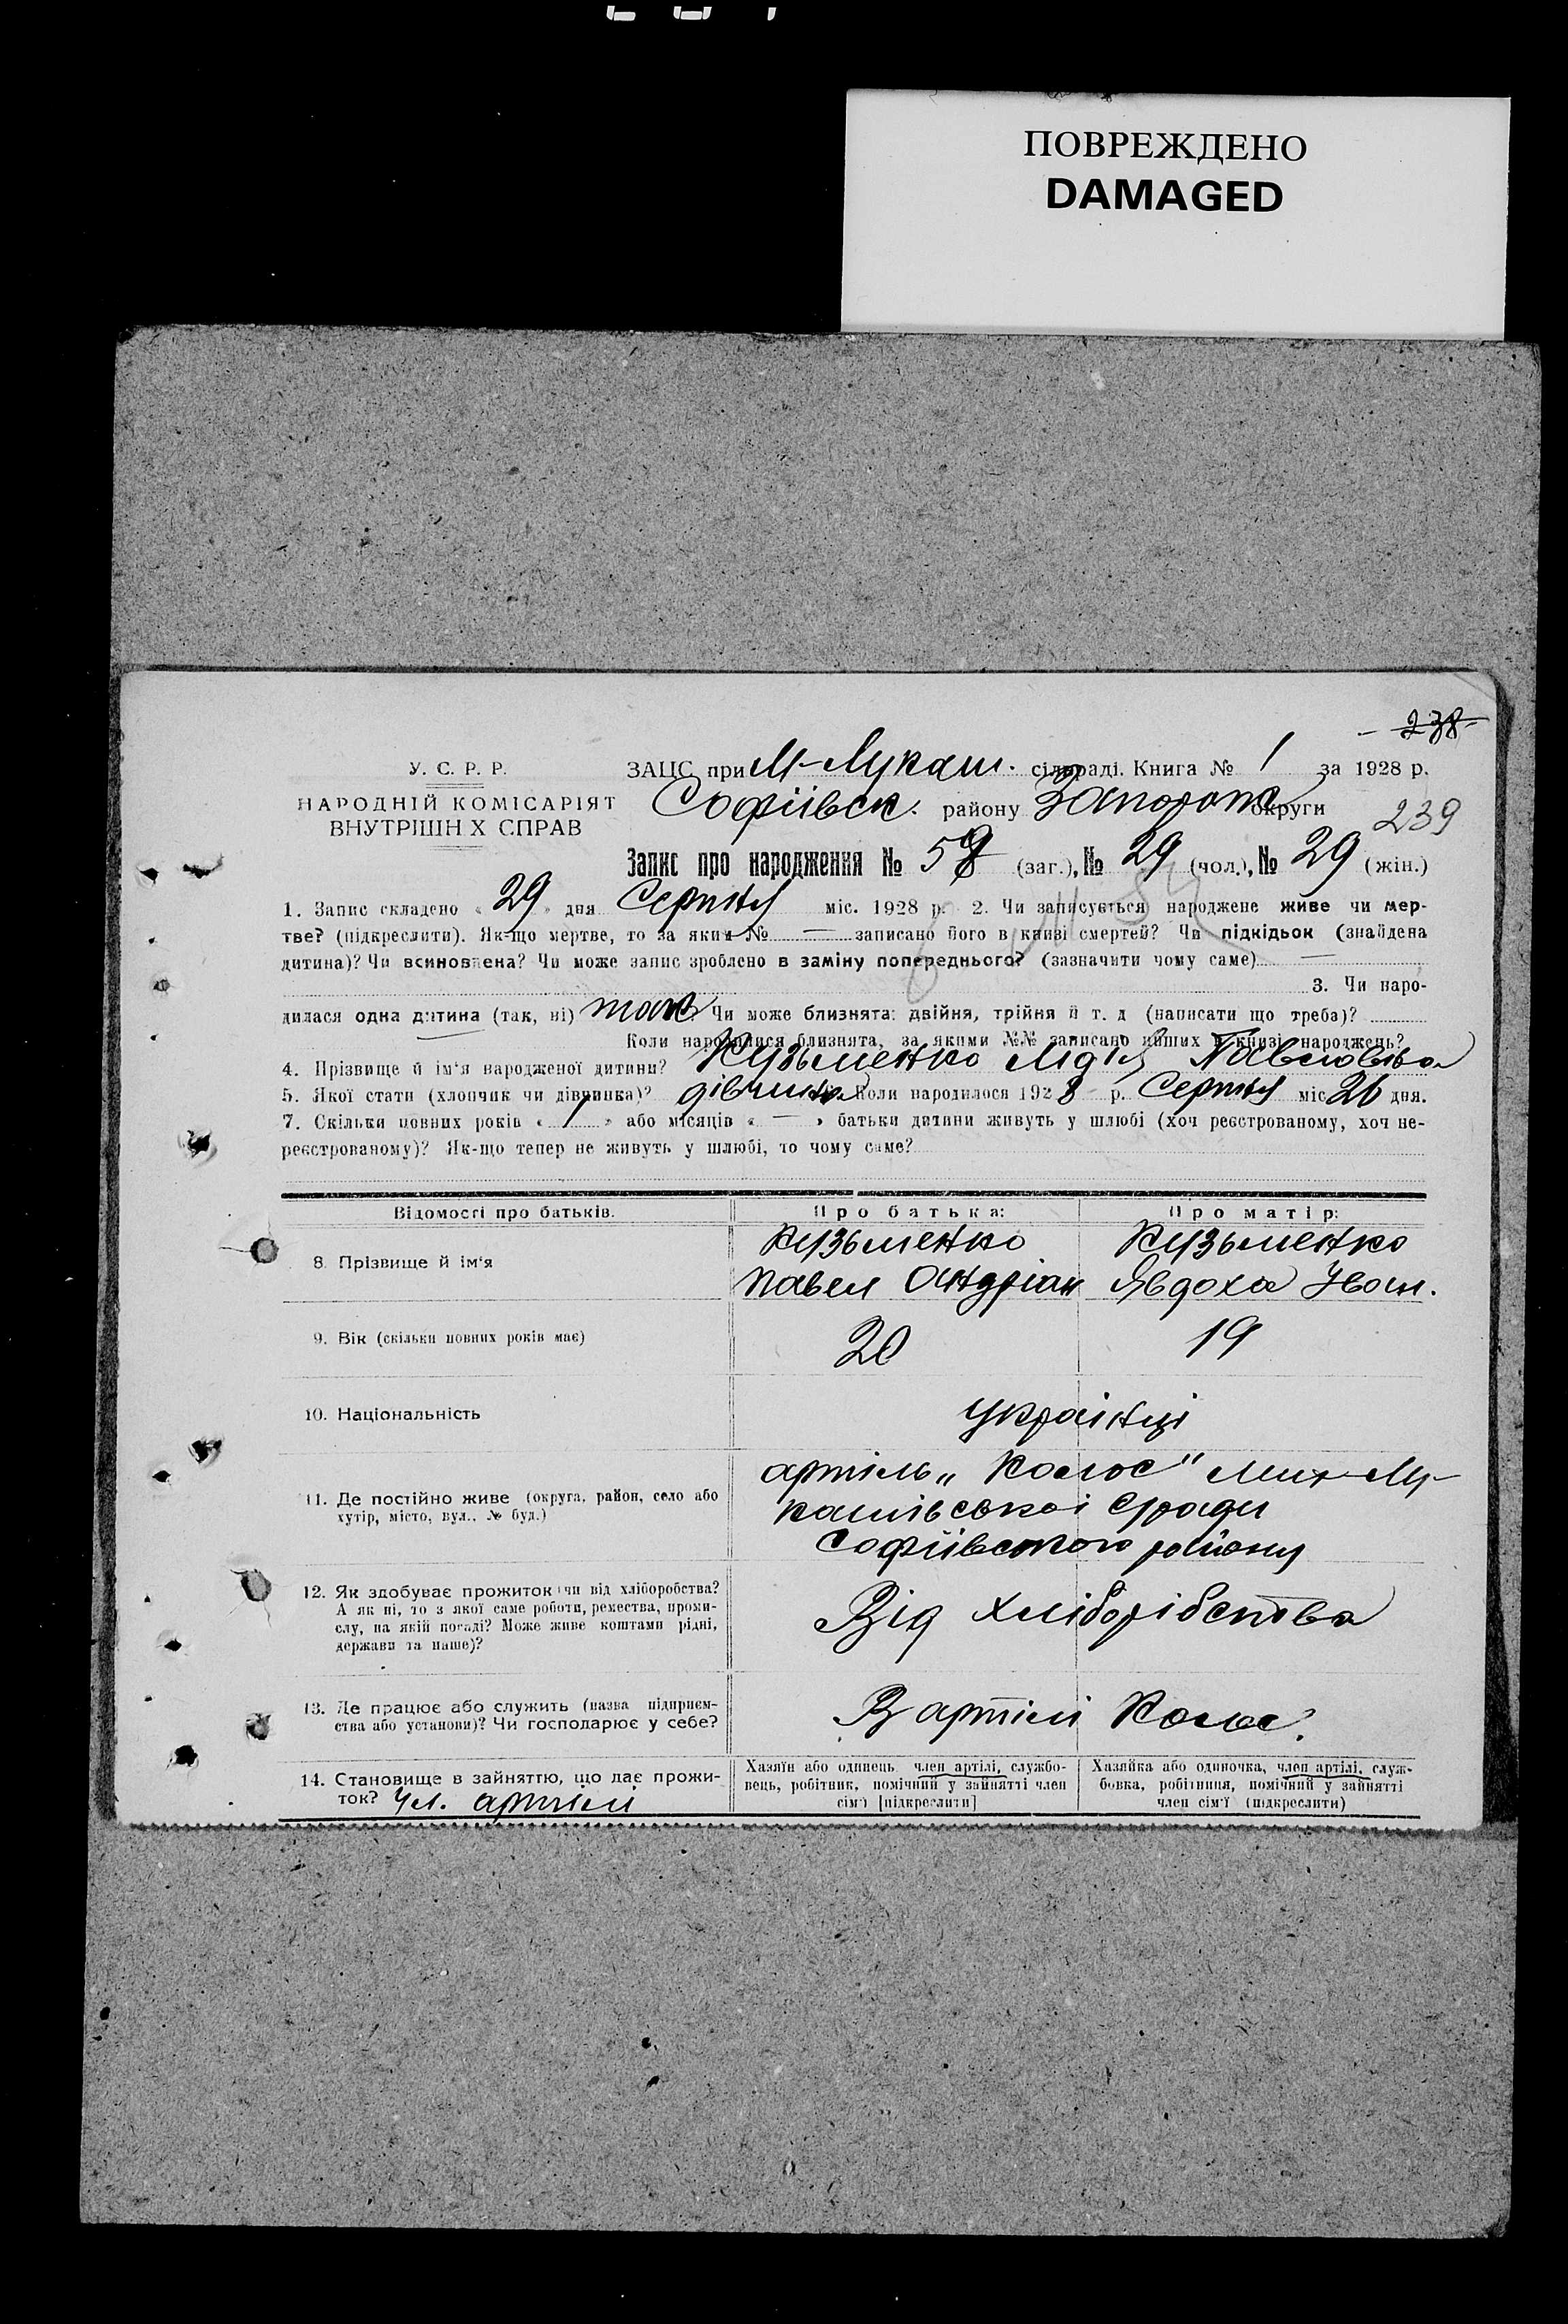 ПОВРЕЖДЕНО
DAMAGED
238
У. С. Р. Р.
НАРОДНІЙ КОМІСАРІЯТ
ВНУТРІШН Х СПРАВ
ЗАЦС при М-Лукаш. сільраді. Книга № 1 за 1928 р.
Софіівск. району Запорож округи
239
Запис про народження № 58 (заг.), № 29 (чол.), № 29 (жін.)
1. Запис складено « 29 » дня Серпня міс. 1928 р. 2. Чи записується народжене живе чи мер-
тве? (підкреслити). Як-що мертве, то за яким № — записано його в книзі смертей? Чи підкідьок (знайдена
дитина)? Чи всиновлена? Чи може запис зроблено в заміну попереднього? (зазначити чому саме) —
3. Чи наро-
дилася одна дитина (так, ні) так Чи може близнята: двійня, трійня й т. д (написати що треба)?
Коли народилися близнята, за якими №№ записано инших в книзі народжень?
4. Прізвище й ім'я народженої дитини? Кузьменко Павловна
5. Якої стати (хлопчик чи дівчинка)? дівчинка Коли народилося 1928 р. Серпня міс 26 дня.
7. Скільки повних років « 1 » або місяців « — » батьки дитини живуть у шлюбі (хоч реєстрованому, хоч не-
реєстрованому)? Як-що тепер не живуть у шлюбі, то чому саме?
Відомості про батьків. Про батька: Про матір:
8. Прізвище й ім'я
Кузьменко
Павел Андріан
Кузьменко
Явдоха Иван.
9. Вік (скільки повних років має) 20 19
10. Національність українці
11. Де постійно живе (округа, район, село або
хутір, місто, вул., № буд.)
артіль „Колос" Мих-Лу-
кашівськоі Сради
Софіівського району
12. Як здобуває прожиток (чи від хліборобства?
А як ні, то з якої саме роботи, ремества, проми-
слу, на якій посаді? Може живе коштами рідні,
держави та инше)?
Від хліборібства
13. Де працює або служить (назва підприєм-
ства або установи)? Чи господарює у себе?
В артілі Колос.
14. Становище в зайняттю, що дає прожи-
ток? Чл. артілі
Хазяїн або одинець член артілі, службо-
вець, робітник, помічний у зайнятті член
сім'ї [підкреслити]
Хазяйка або одиночка, член артілі, служ-
бовка, робітниця, помічний у зайнятті
член сім'ї (підкреслити)